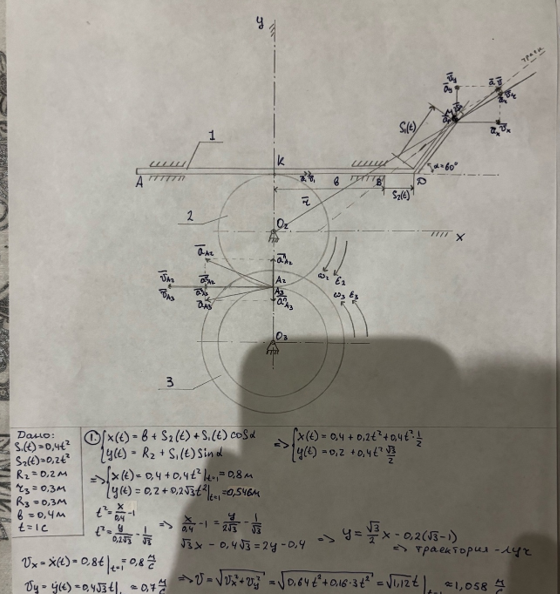 y
траект.
1
S₁(t)
α=60°
A
K
в
B
D
S₂(t)
r̄
2
O₂
x
ω₂ ε₂
A₂
A₃
ω₃ ε₃
O₃
3
Дано:
S₁(t)=0,4t²
S₂(t)=0,2t²
R₂=0,2м
r₃=0,3м
R₃=0,3м
в=0,4м
t=1c
1. { x(t) = в + S₂(t) + S₁(t) cosα
y(t) = R₂ + S₁(t) sinα
=> { x(t) = 0,4 + 0,2t² + 0,4t²·1/2
y(t) = 0,2 + 0,4t² √3/2
=> { x(t) = 0,4 + 0,4t² |t=1 = 0,8м
y(t) = 0,2 + 0,2√3t² |t=1 = 0,546м
t² = x/0,4 - 1
t² = y/0,2√3 - 1/√3
=> x/0,4 - 1 = y/2√3 - 1/√3
√3x - 0,4√3 = 2y - 0,4
=> y = √3/2 x - 0,2(√3-1)
=> траектория - луч
Vx = ẋ(t) = 0,8t |t=1 = 0,8 м/с
Vy = ẏ(t) = 0,4√3t | = 0,7 м/с
=> V = √Vx²+Vy² = √0,64t²+0,16·3t² = √1,12t |t=1 = 1,058 м/с